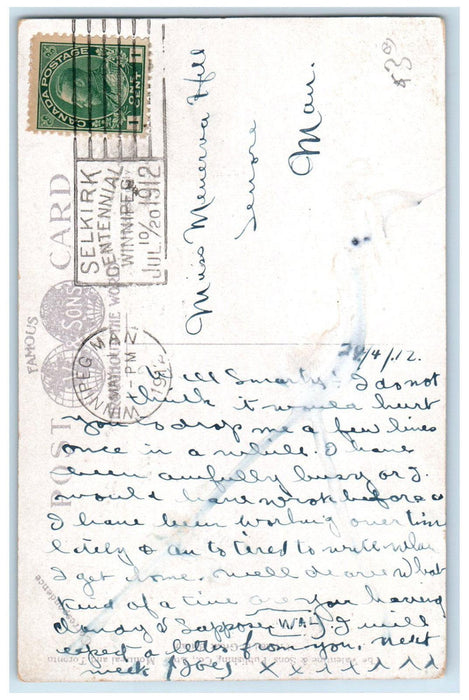 CANADA POSTAGE
1 CENT 1
SELKIRK
CENTENNIAL
WINNIPEG
JUL. 10/20 1912
WINNIPEG MAN
PM
POST CARD
FAMOUS
SONS
THROUGHOUT THE WORLD
43⁰
Miss Menerva Hill
Lenore
Man.
/4/12.
Well Smarty I do not
think it would hurt
you to drop me a few lines
once in a while. I have
been awfully busy or I
would have wrote before as
I have been working over time
lately & am to tired to write when
I get home. well dearie what
kind of a time are you having
dandy I Suppose WAL I will
expect a letter from you next
week (Joe) x x x x x x x
Valentine & Sons Publishing Co., Montreal and Toronto